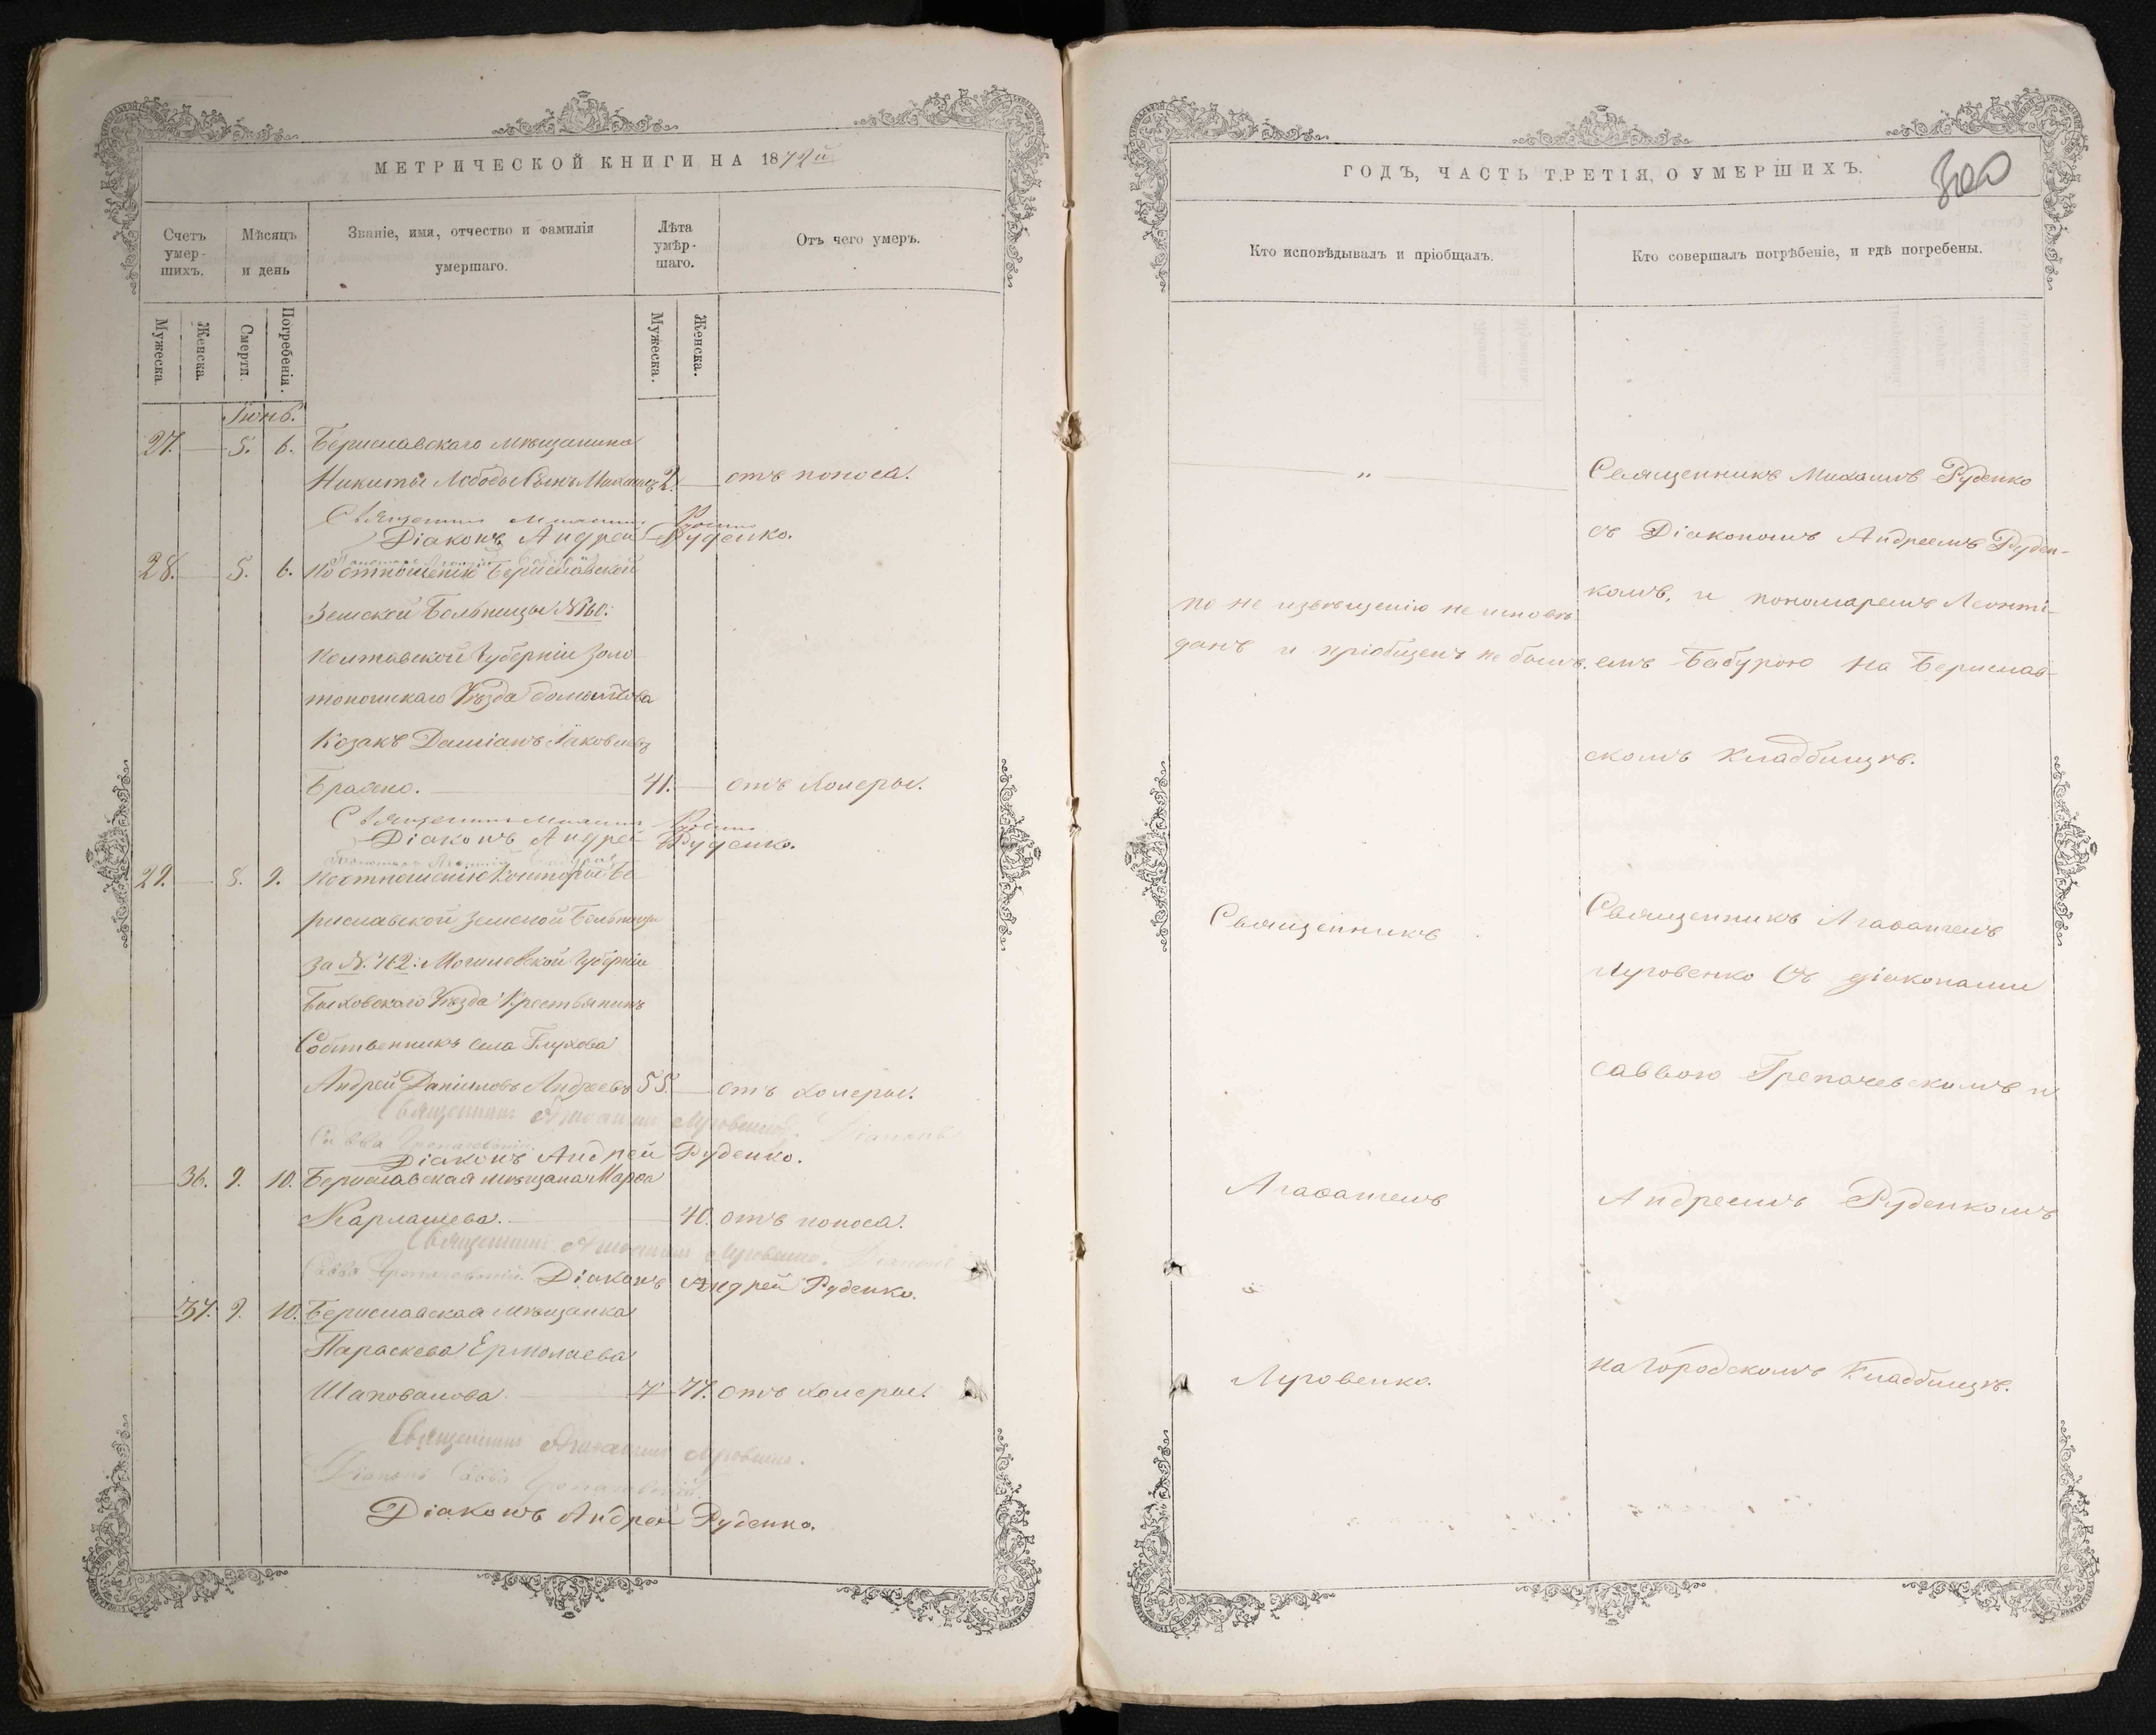 МЕТРИЧЕСКОЙ КНИГИ НА 1872й
Счетъ умер-шихъ.
Мѣсяцъ и день
Званіе, имя, отчество и фамилія умершаго.
Лѣта умѣр-шаго.
Отъ чего умеръ.
Мужеска.
Женска.
Смерти.
Погребенія.
Мужеска.
Женска.
Іюнь.
27. 5. 6. Бериславскаго мѣщанина
Никиты Лободы сынъ Михаилъ 2. отъ поноса.
Священникъ Михаилъ Руденко
Діаконъ Андрей Руденко.
28. 5. 6. По отношенію Бериславской
Земской Больницы №
Полтавской Губерніи Золо-
тоношскаго Уѣзда
Козакъ Даміанъ Іаковлевъ
41. отъ холеры.
Священникъ Михаилъ Руденко
Діаконъ Андрей Руденко.
29. 8. 9. По отношенію Конторы Бе-
риславской Земской Больницы
за №. Могилевской Губерніи
Быховскаго Уѣзда Крестьянинъ
Собственникъ села Глухова
Андрей Даніиловъ Андреевъ 55. отъ холеры.
Священникъ Агаѳангелъ Луговенко. Діаконъ
Савва
Діаконъ Андрей Руденко.
36. 9. 10. Бериславская мѣщанка Марѳа
Карлашева. 40. отъ поноса.
Священникъ Агаѳангелъ Луговенко. Діаконъ
Савва
Діаконъ Андрей Руденко.
37. 9. 10. Бериславская мѣщанка
Параскева Ермолаева
Шаповалова 77. отъ холеры.
Священникъ Агаѳангелъ Луговенко.
Діаконъ Савва
Діаконъ Андрей Руденко.
ГОДЪ, ЧАСТЬ ТРЕТІЯ, О УМЕРШИХЪ.
300
Кто исповѣдывалъ и пріобщалъ.
Кто совершалъ погрѣбеніе, и гдѣ погребены.
"
по не извѣщенію не исповѣ-
данъ и пріобщенъ не былъ.
Священникъ
Агаѳангелъ
Луговенко.
Священникъ Михаилъ Руденко
съ Діакономъ Андреемъ Руден-
комъ, и пономаремъ Леонті-
емъ Бабурою на Берислав-
скомъ Кладбищѣ.
Священникъ Агаѳангелъ
Луговенко Съ діаконами
Саввою Грепачевскимъ и
Андреемъ Руденкомъ
на Городскомъ Кладбищѣ.